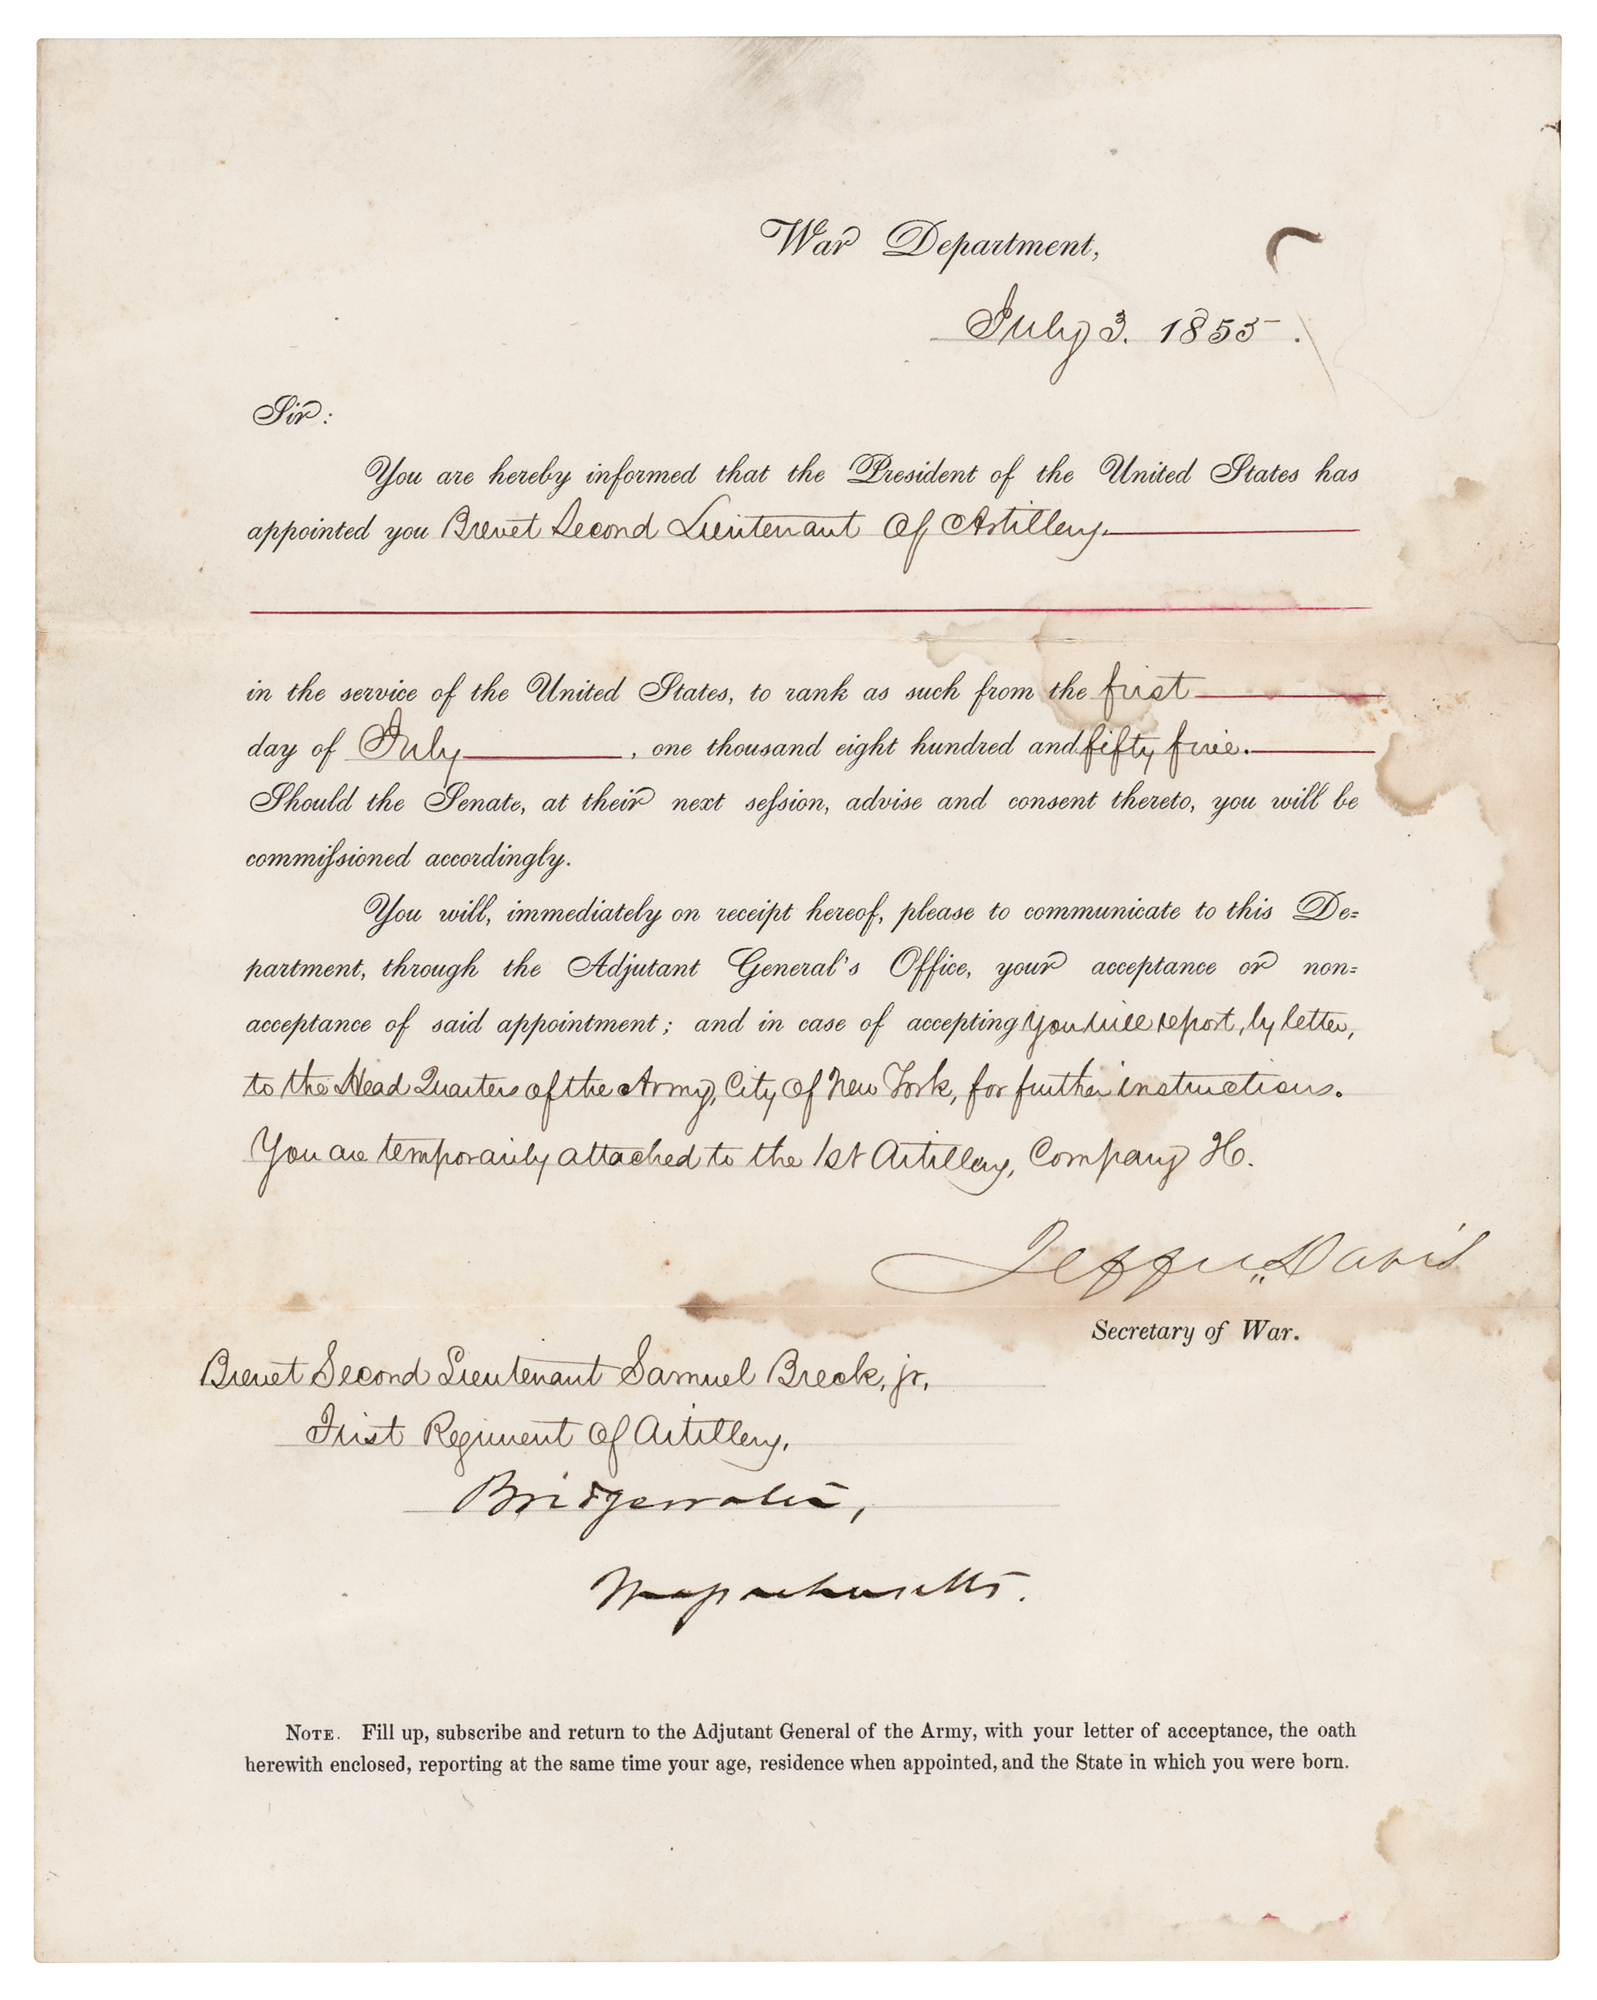 War Department,
July 3. 1855.
Sir:
You are hereby informed that the President of the United States has
appointed you Brevet Second Lieutenant Of Artillery.
in the service of the United States, to rank as such from the first
day of July, one thousand eight hundred and fifty five.
Should the Senate, at their next session, advise and consent thereto, you will be
commissioned accordingly.
You will, immediately on receipt hereof, please to communicate to this De=
partment, through the Adjutant General's Office, your acceptance or non=
acceptance of said appointment; and in case of accepting you will report, by letter,
to the Head Quarters of the Army, City Of New York, for further instructions.
You are temporarily attached to the 1st Artillery, Company H.
Jeffn. Davis
Secretary of War.
Brevet Second Lieutenant Samuel Breck, jr,
First Regiment Of Artillery,
Bridgewater,
Massachusetts.
NOTE. Fill up, subscribe and return to the Adjutant General of the Army, with your letter of acceptance, the oath
herewith enclosed, reporting at the same time your age, residence when appointed, and the State in which you were born.